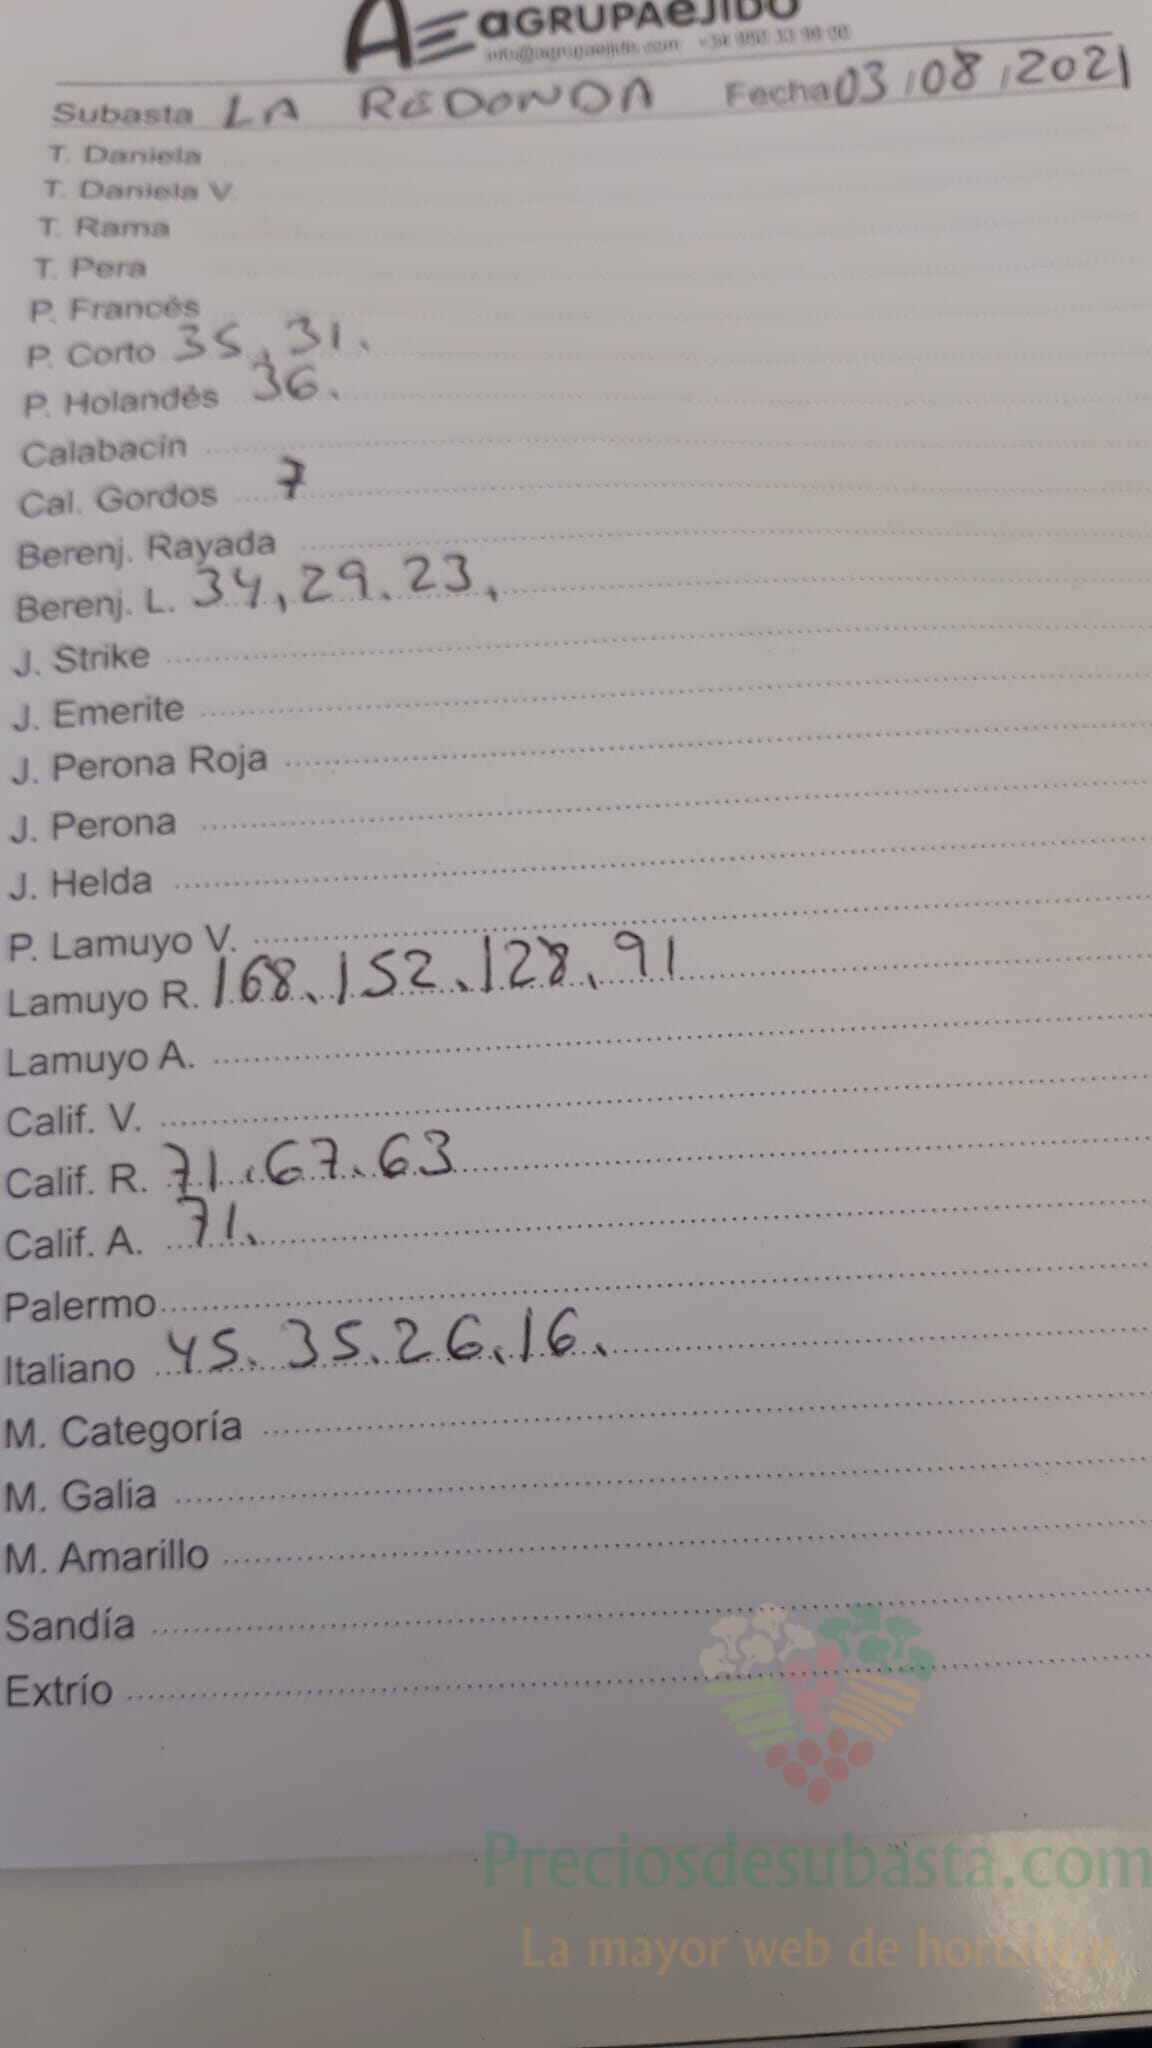 AE aGRUPAeJIDO
info@agrupaejido.com
Subasta LA REDONDA Fecha 03/08/2021
T. Daniela
T. Daniela V.
T. Rama
T. Pera
P. Francés
P. Corto 35, 31.
P. Holandés 36.
Calabacín
Cal. Gordos 7
Berenj. Rayada
Berenj. L. 34, 29. 23,
J. Strike
J. Emerite
J. Perona Roja
J. Perona
J. Helda
P. Lamuyo V.
Lamuyo R. 168. 152. 128. 91
Lamuyo A.
Calif. V.
Calif. R. 71. 67. 63
Calif. A. 71.
Palermo
Italiano 45. 35. 26. 16.
M. Categoría
M. Galia
M. Amarillo
Sandía
Extrío
Preciosdesubasta.com
La mayor web de hortalizas